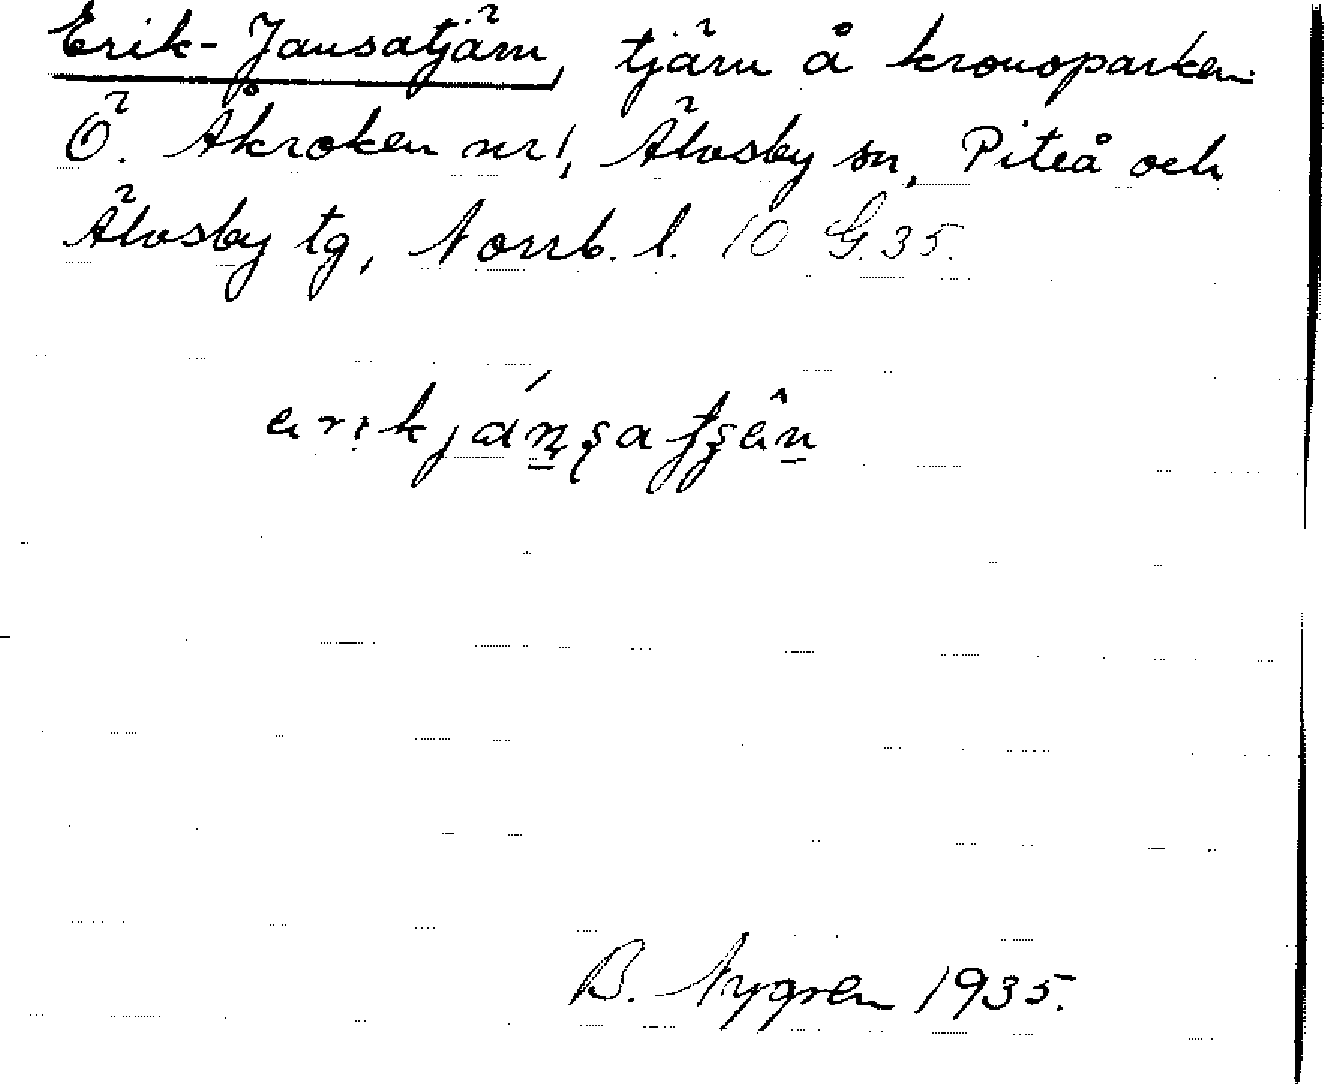 Erik-Jansatjärn, tjärn å kronoparken
Ö. Åkroken nr 1, Älvsby sn, Piteå och
Älvsby tg, Norrb. l. 10 G. 35.
B. Nygren 1935.